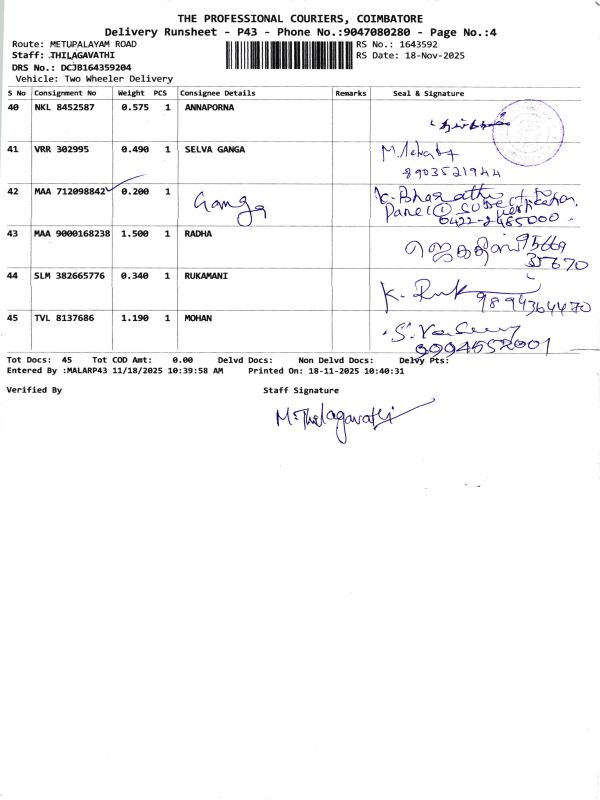 THE PROFESSIONAL COURIERS, COIMBATORE
Delivery Runsheet - P43 - Phone No.:9047080280 - Page No.:4
Route: METUPALAYAM ROAD RS No.: 1643592
Staff: THILAGAVATHI RS Date: 18-Nov-2025
DRS No.: DCJB164359204
Vehicle: Two Wheeler Delivery
S No Consignment No Weight PCS Consignee Details Remarks Seal & Signature
40 NKL 8452587 0.575 1 ANNAPORNA
41 VRR 302995 0.490 1 SELVA GANGA
8903521944
42 MAA 712098842 0.200 1 Ganga K. Bharathi
0422-2485000.
43 MAA 9000168238 1.500 1 RADHA 95669
35670
44 SLM 382665776 0.340 1 RUKAMANI K. Ruk 9894364470
45 TVL 8137686 1.190 1 MOHAN
9994552001
Tot Docs: 45 Tot COD Amt: 0.00 Delvd Docs: Non Delvd Docs: Delvy Pts:
Entered By :MALARP43 11/18/2025 10:39:58 AM Printed On: 18-11-2025 10:40:31
Verified By Staff Signature
M.Thelagavathi